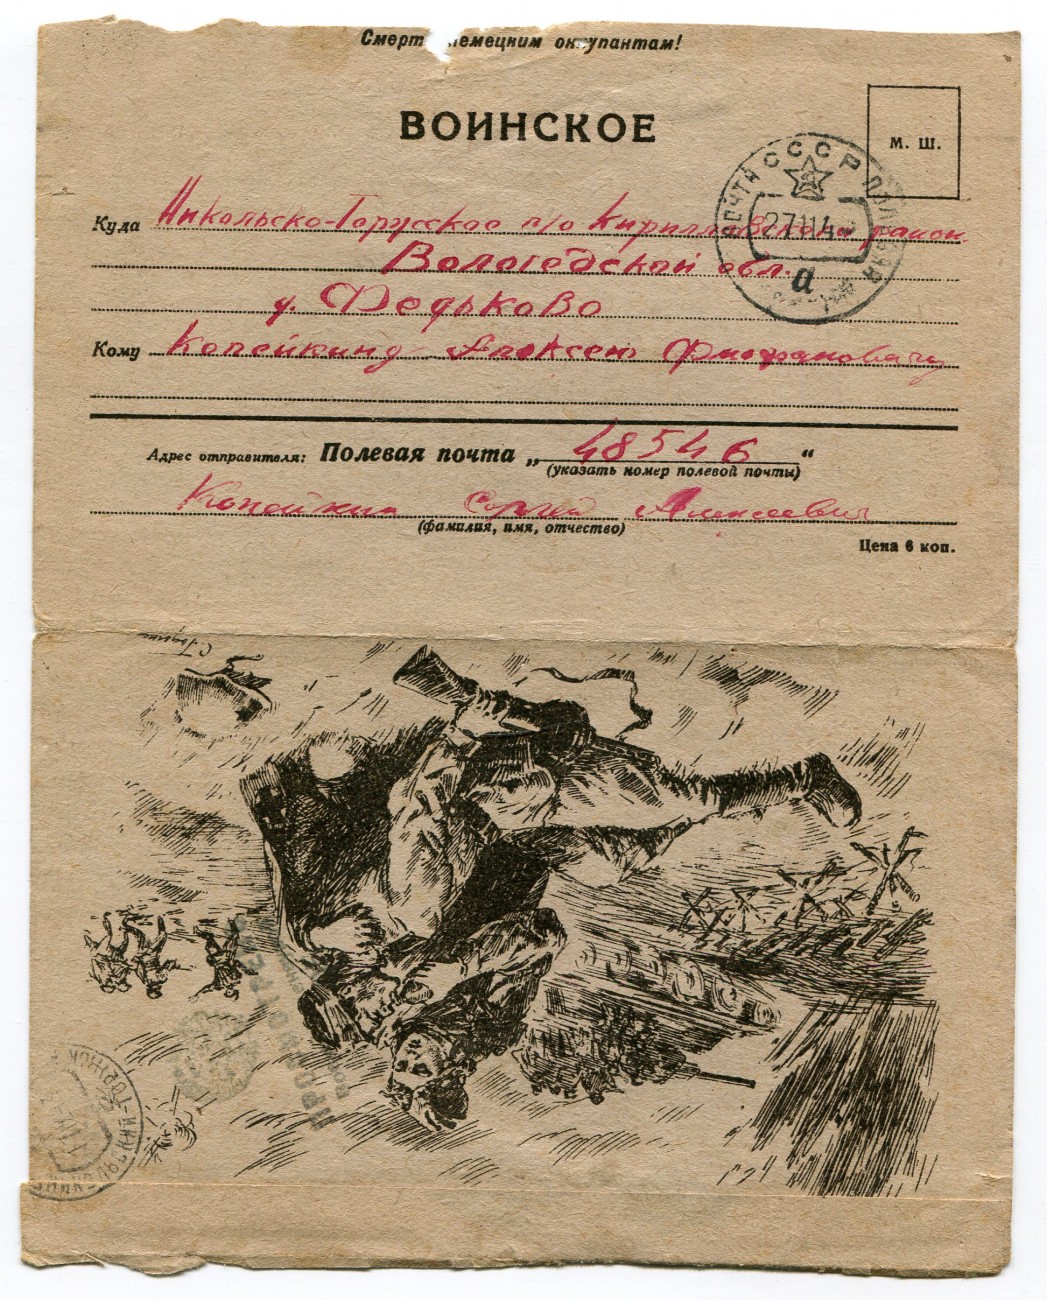 Смерт немецким оккупантам!
ВОИНСКОЕ
М. Ш.
ПОЧТА СССР ПОЛЕВАЯ
27 11 4
а
Куда Никольско-Торжское п/о Кирилловского район
Вологодской обл.
д. Федьково
Кому Копейкину Алексею
Адрес отправителя: Полевая почта „48546“
(указать номер полевой почты)
Копейкин Сергей Алексеевич
(фамилия, имя, отчество)
Цена 6 коп.